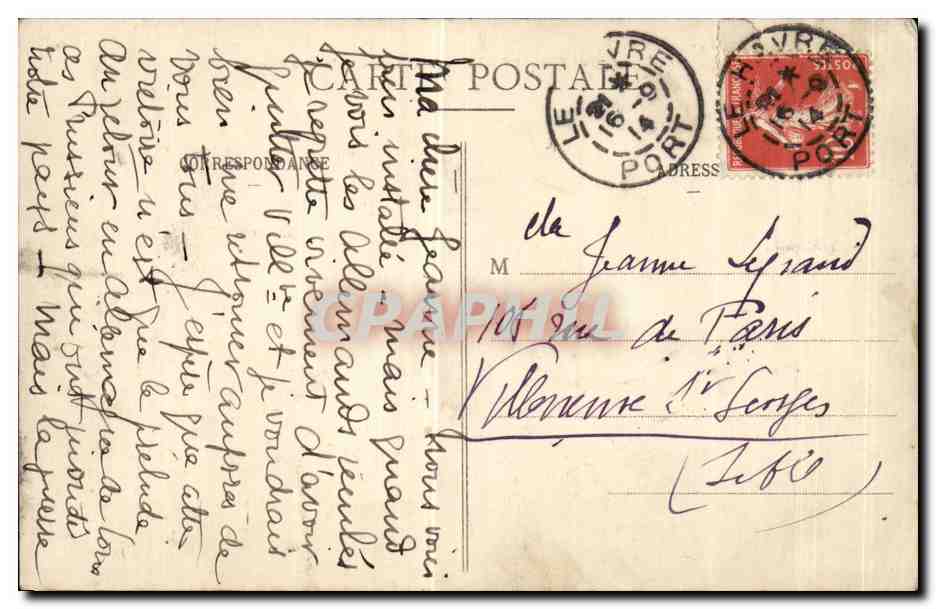 CARTE POSTALE
CORRESPONDANCE
ADRESSE
LE HAVRE PORT
LE HAVRE PORT
Ma chère Jeanne – nous voici
bien installée – mais quand
je vois les Allemands reculés
je regrette vivement d'avoir
quitter Vill^ve et je voudrais
bien me retrouver auprès de
vous tous – J'espère que cette
victoire n'est que le prélude
au retour en Allemagne de tous
ces Prussiens qui ont
notre pays – Mais la guerre
M elle Jeanne Legrand
106 rue de Paris
Villeneuve St Georges
(S. & O)
CPAPHIL